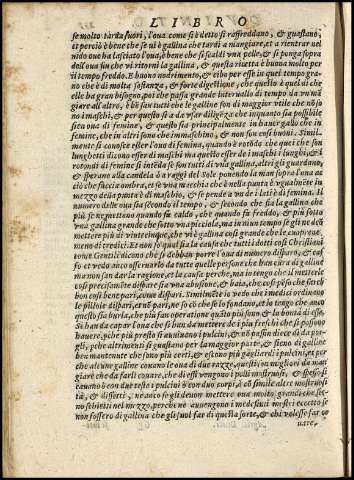 LIBRO
se molto tarda fuori, l'oua come si è detto si raffreddano, & guastano,
et perciò è bene che se ui è gallina che tardi a mangiare, et a rientrar nel
nido oue ha lasciato l'oua, è bene che si saldi vna pelle, & si ponga sopra
dell'oua fin che vi ritorni la gallina, & questa ricetta è buona molto per
il tempo freddo. E buono nodrimento, & cibo per esse in quel tempo grano
che è di molta sostanza, & forte digestione; che quello è quel di che
elle ha gran bisogno, per che passa grande interuallo di tempo da vn mã
giare all'altro, & bẽ sãn tutti che le galline son di maggior vtile che nõ so
no i maschi, & per questo si a da vsar diligẽza che inquanto sia possibile
sien oua di femine, & questo sia principalmente in hauer gallo che in
femine, che in altri sono che immaschino, & non son così buoni. Simil-
mente si conosce esser l'ouo di femina, quando è rotõdo che quei che son
lunghetti dicono esser di maschi ma quello esser de i maschi i lunghi, & i
rotondi di femine si intẽda se son tutti di vna gallina, altri gli guardano,
& sperano alla candela ò a raggi del Sole ponendo la man sopra l'oua ac
ciò che faccia ombra, et se vna macchia che è nella punta è vgualmẽte in
mezzo della punta è di maschio, & se pende a vn de i lati è di femina. Il
numero delle oua sia secondo il tempo, & secondo che sia la gallina che
più se ne mettono quando fà caldo, che quando fà freddo, & più sotto
vna gallina grande che sotto vna picciola, ma in niun tempo se gli ne deõ
mettere più di vinticinque, che vi è gallina così grande che le cuopra ue
meno di tredici. Et non so qual sia la causa che tutti i dotti così Christiani
come Gentili dicono che si debban porre l'oua di numero disparo, & ca-
so et vedo anco osseruarlo da tutte quelle persone che han cura di galline
ma non san dar la ragione, et la causa perche, ma io tengo che il metterle
così precisamẽte dispare sia vna abusione, & baia, che così pẽso che sareb
bon così bene pari, come dispari. Similmẽte io vedo che i medici ordinano
le pillole dispari, et nõ pari, ne so io che che se lo fondano, et io tengo che anco
questo sia burla, che più fan operatione quãto più sono, & la bontà di esse.
Si han da capar l'oua che si han da mettere de i più freschi che si possono
hauere, pche più presto si animano i pulcini, & nõ passin diece dì da por-
gli, pche altrimenti si guastano per la maggior parte, & sieno di galline
ben mantenute che sono più certi, & escono più gagliardi i pulcini, et per
che alcune galline couano le oua di due razze, questi son migliori da man
giare che da farli couare, che di essi vengono i polli mostruosi, & spesso si
cauano ò con due teste i pulcini ò con dui corpi, ò cõ simile altre mostruosi
tà, & difetti, ne anco se gli deuon mettere molto grandi che sie-
no schietti nel mezzo, perche nõ auuengono i medesimi mostri eccetto se
non fossero di gallina che gli suol far di questa sorte, & chi volesse far ca
uare,